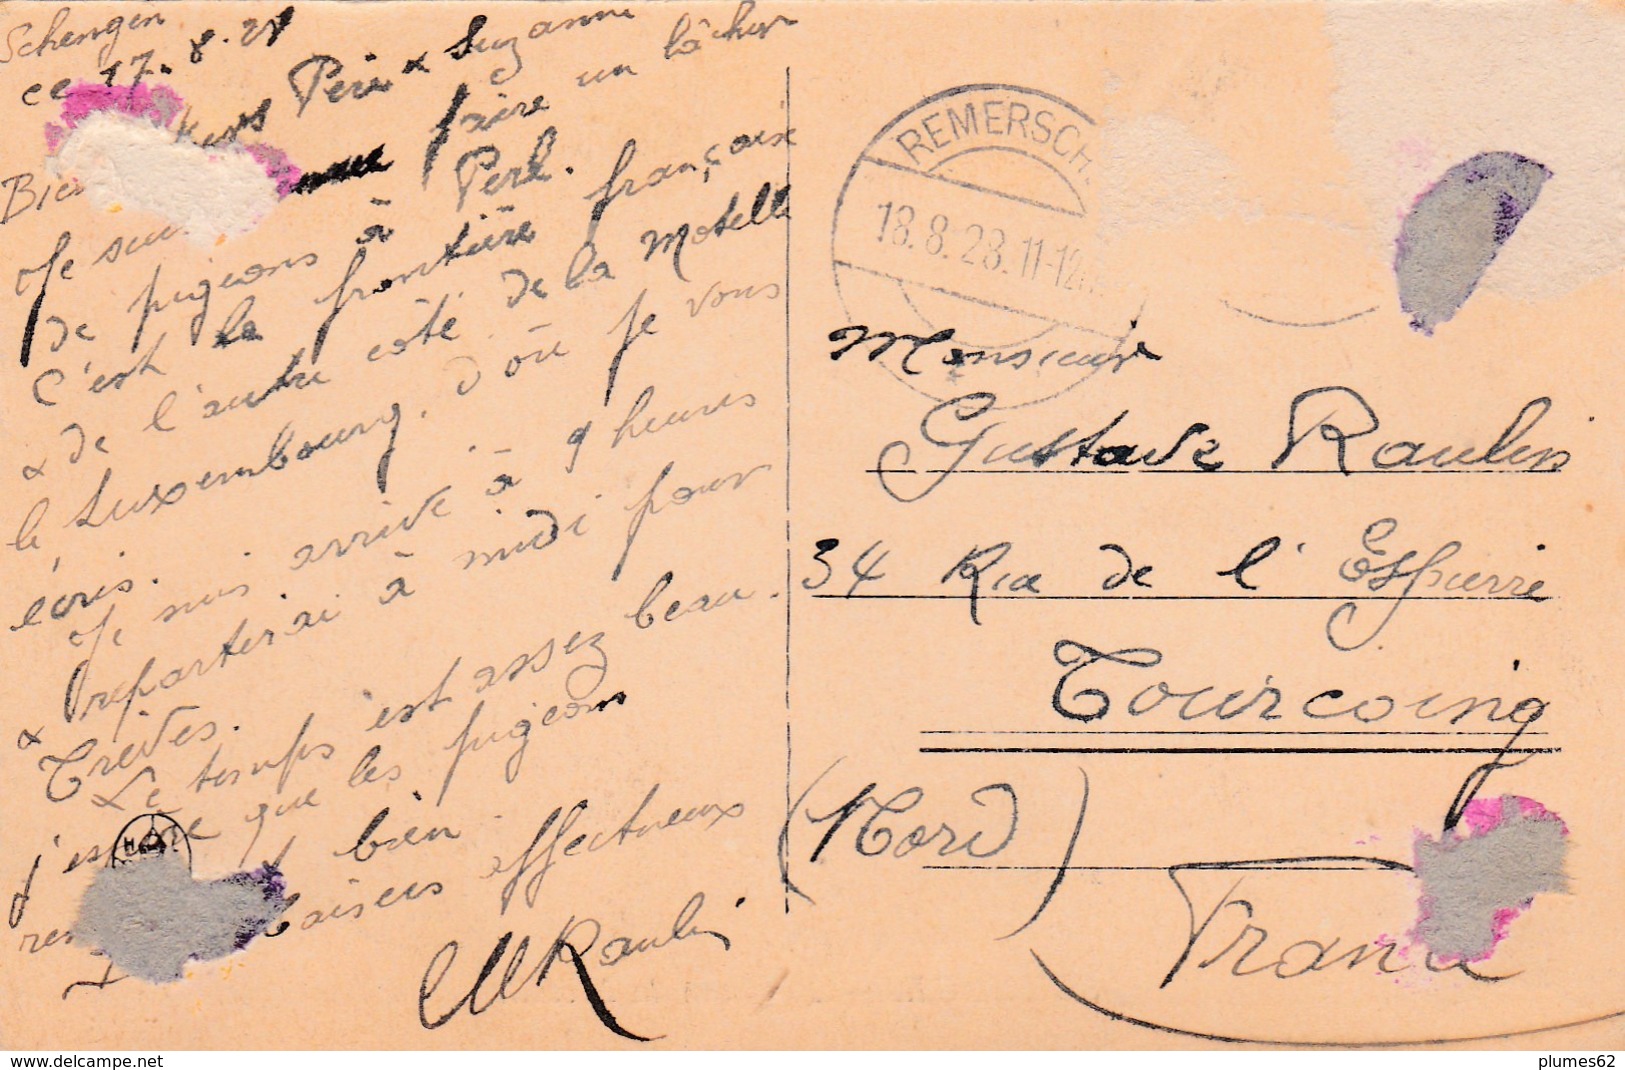 Schengen
ce 17.8.28
Bien chers Père & Suzanne
Je suis venu faire un lâcher
de pigeons à Perl.
C'est la frontière française
& de l'autre côté de la Moselle
le Luxembourg. d'où je vous
écris.
Je suis arrivé à 9 heures
& repartirai à midi pour
Trèves.
Le temps est assez beau.
j'espère que les pigeons
bien
Baisers affectueux
Raulin
REMERSCH
18.8.28.11-12
Monsieur
Gustave Raulin
34 Rue de l'Espierre
Tourcoing
(Nord)
France
www.delcampe.net
plumes62